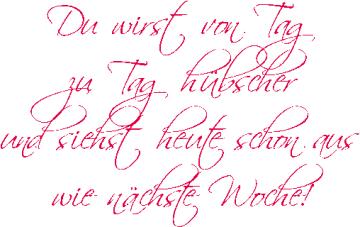 Du wirst von Tag
zu Tag hübscher
und siehst heute schon aus
wie nächste Woche!